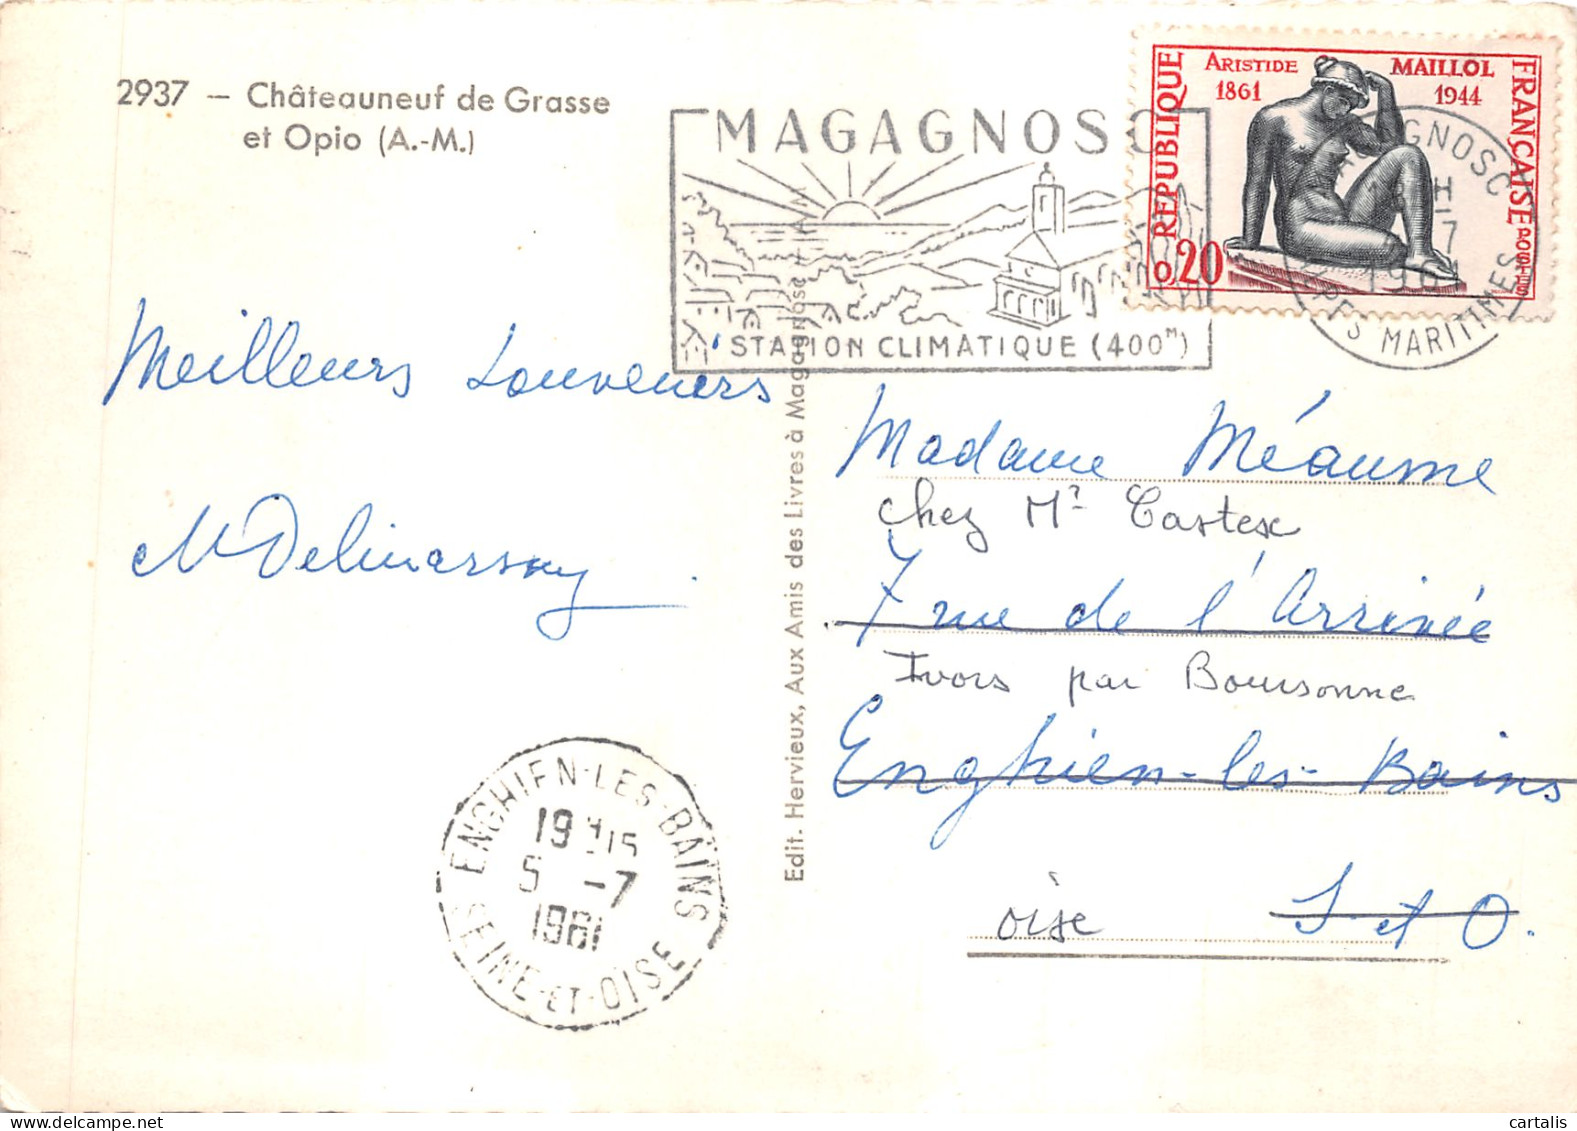 2937 — Châteauneuf de Grasse
et Opio (A.-M.)
MAGAGNOSC
STATION CLIMATIQUE (400ᴹ)
RÉPUBLIQUE FRANÇAISE
POSTES
ARISTIDE MAILLOL
1861 1944
0,20
GNOSC
18 H
-7
PES MARITIMES
Meilleurs Souvenirs
Edit. Hervieux, Aux Amis des Livres à Magagnosc
Madame Méaume
chez Mʳ Castex
7 rue de l'Arrivée
Ivors par Boursonne
Enghien-les-Bains
oise S. et O.
ENGHIEN-LES-BAINS
19 H 15
5 -7
1961
SEINE-ET-OISE
cartalis